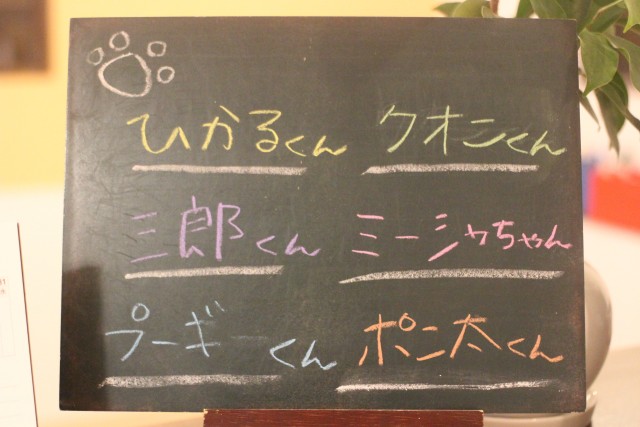 ひかるくん クオンくん
三郎くん ミーシゥちゃん
プーギーくん ポン太くん